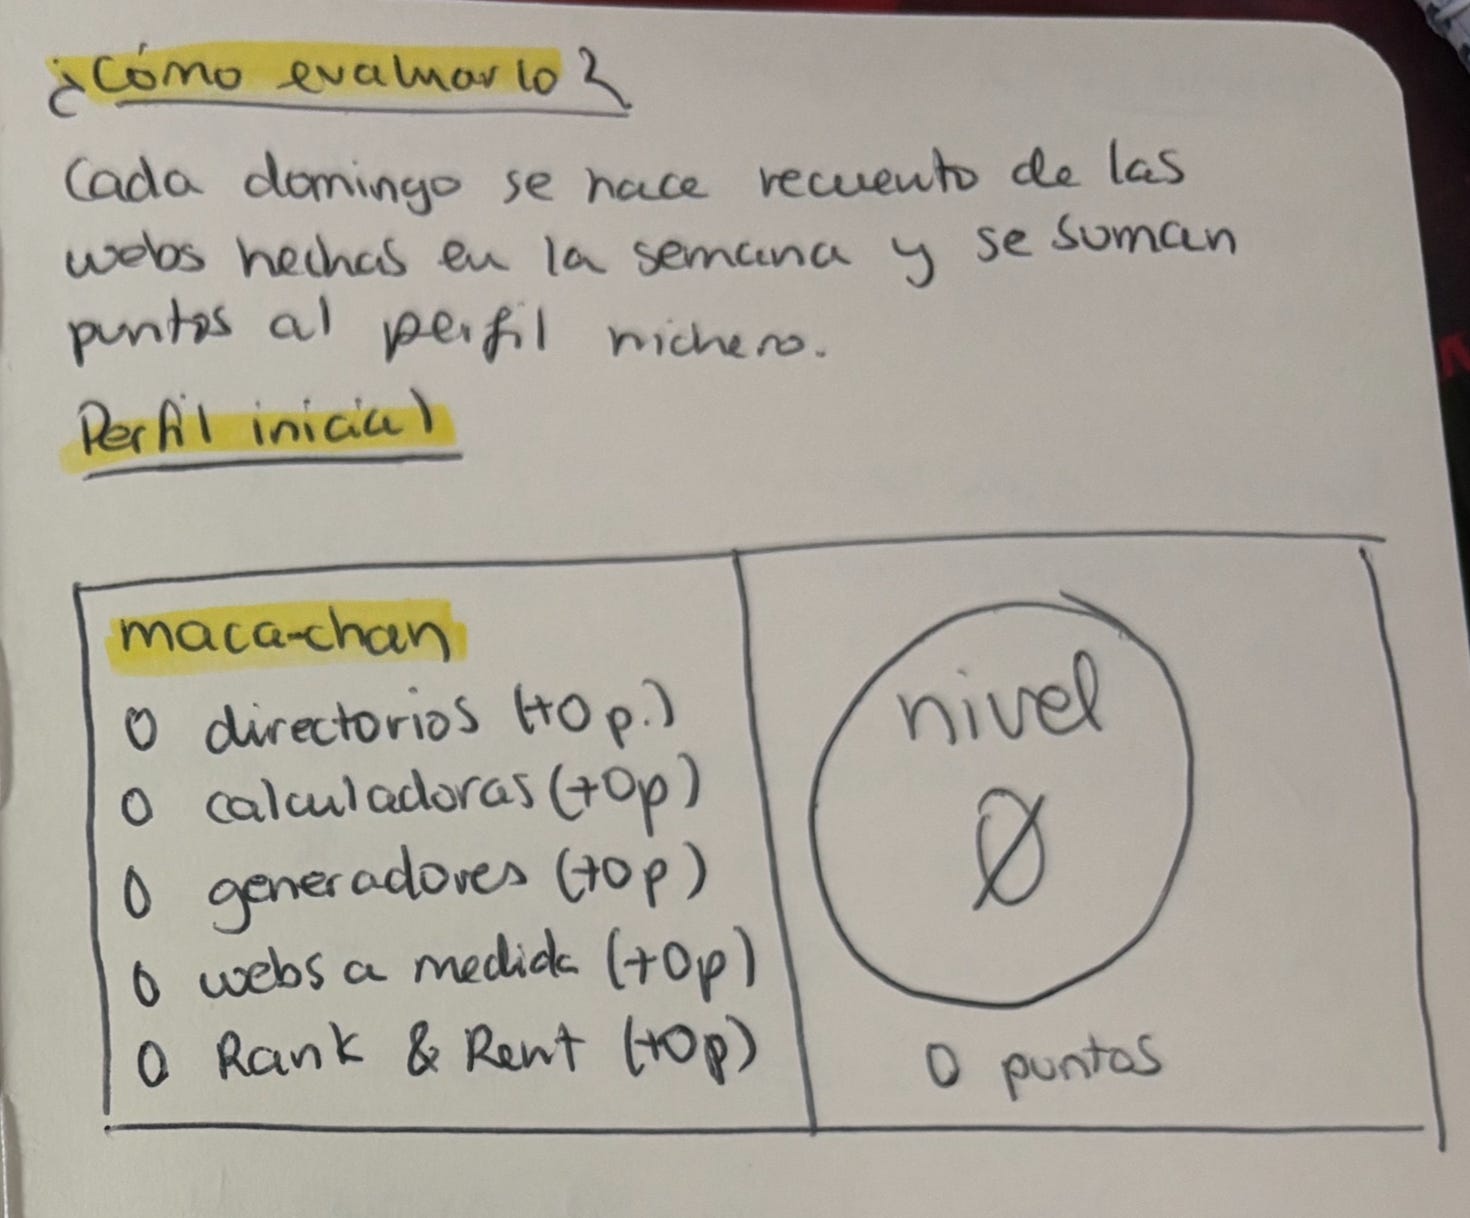 ¿Cómo evaluarlo?
Cada domingo se hace recuento de las
webs hechas en la semana y se suman
puntos al perfil nichero.
Perfil inicial
maca-chan
0 directorios (+0 p.)
0 calculadoras (+0p)
0 generadores (+0p)
0 webs a medida (+0p)
0 Rank & Rent (+0p)
nivel
0
0 puntos